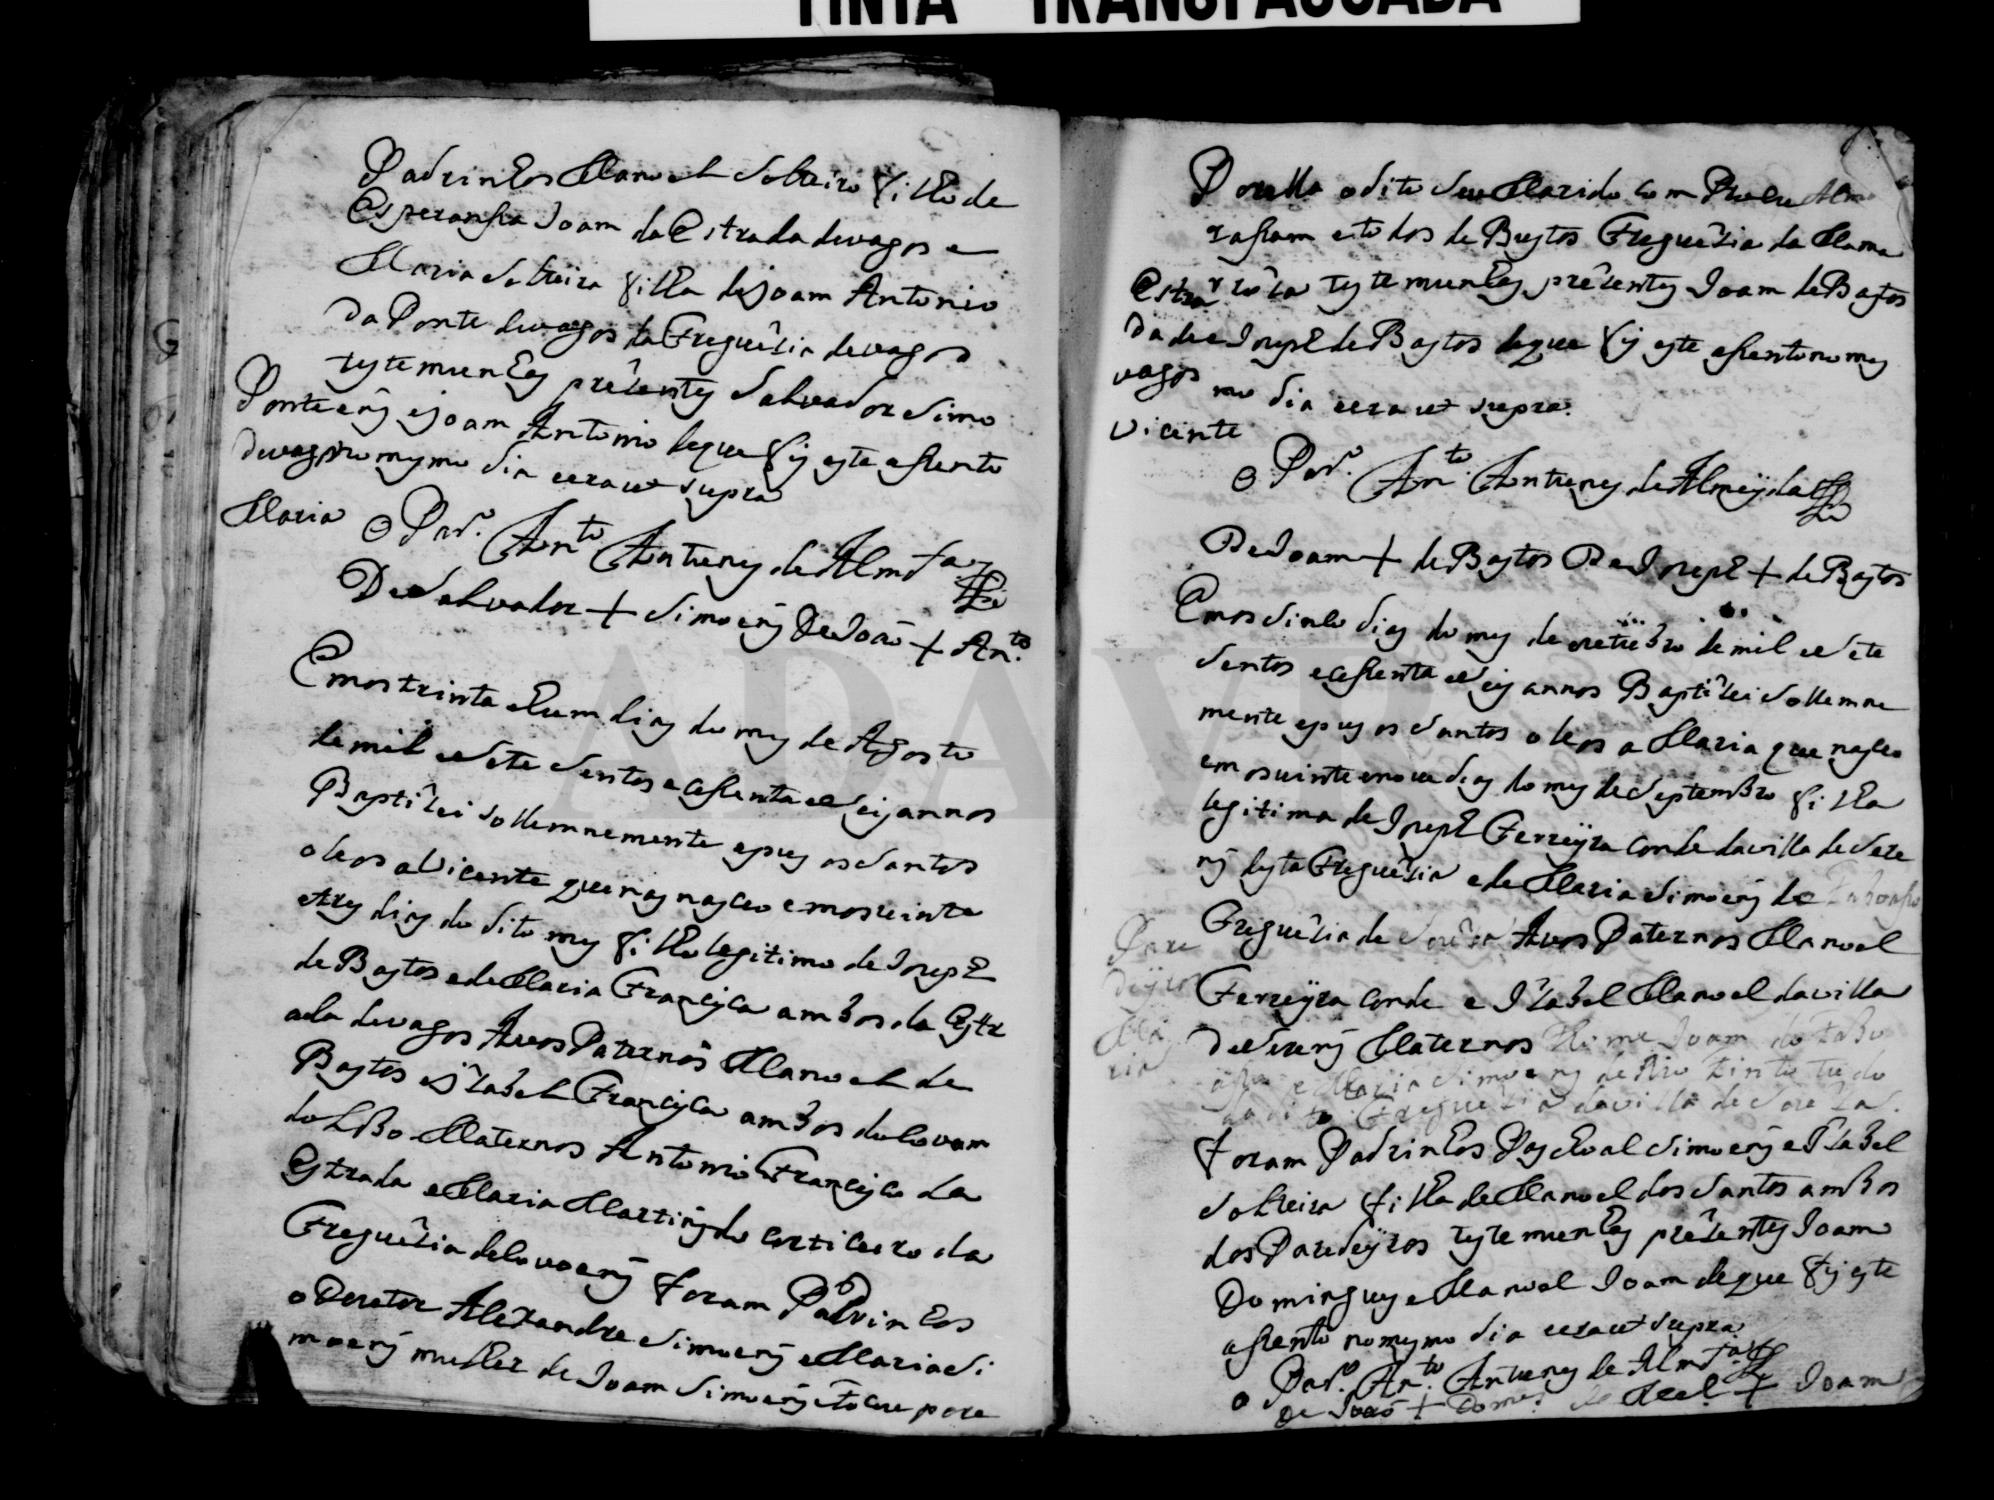 TINTA TRANSPASSADA
Padrinhos Manoel Solteiro filho de
Esperansa Joam da Estrada de vagos e
Maria Solteira filha de joam Antonio
Da Ponte de vagos da Freguêzia de vagos
testemunhas prezentes Salvador Simo
ens e joam Antonio de que fis este asento
no mesmo dia eera ut supra
Ponte
de vagos
Maria
O Par.º An.to Antunes de Almda
De Salvador + Simoens De Joaõ + An.to
Em os trinta e hum dias do mes de Agosto
de mil e Sete Sentos e cesenta e Seis annos
Baptizei Sollemnemente e pus os Santos
oleos a Vicente que nas nasceo em os vinte
e tres dias do dito mes filho legitimo de Joseph
de Bastos e de Maria Francisca ambos da Estr
ada de vagos Avos Paternos Manoel de
Bastos e Izabel Francisca ambos de Covam
do Lobo Maternos Antonio Francisco da
Estrada e Maria Martins do Corticeiro da
Freguêzia de Covoens foram Padrinhos
o Doutor Alexandre Simoens e Maria Si
moens mulher de Joam Simoens e tocou por
Por ella o dito Seu Marido com
rasam e todos de Bustos Freguêzia da Mama
roza testemunhas prezentes Joam de Bastos
e Joseph de Bastos de que fis este asento no mes
mo dia eera ut supra
Estra
Da de
vagos
vicente
O Par.º An.to Antunes de Almeÿda
De Joam + de Bastos De Joseph + de Bastos
Em os Sinco dias do mes de outubro de mil e Sete
Sentos e cesenta e Seis annos Baptizei Sollemne
mente e pus os Santos oleos a Maria que nasceo
em os vinte e nove dias do mes de Septembro filha
legitima de Joseph Ferreÿra Conde da villa de Soza
desta Freguêzia e de Maria Simoens de
Freguêzia de Avos Paternos Manoel
Ferreÿra Conde e Izabel Manoel da villa
Maternos Joam do
e Maria Simoens de
da dita Freguezia da villa de
foram Padrinhos Pascoal Simoens e Izabel
Solteira filha de Manoel dos Santos ambos
dos Paredeÿros testemunhas prezentes Joam
Domingues e Manoel Joam de que fis este
asento no mesmo dia eera ut supra
Pare
deÿros
Ma
ria
o Par.º An.to Antunes de Almda
De Joaõ + Domes de Mel + Joam
ADAVR